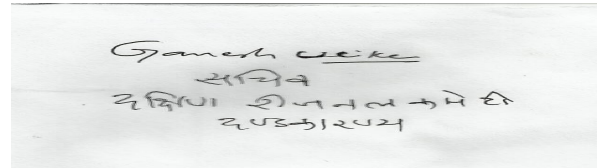 Ganesh Uike
सचिव
दक्षिण रीजनल कमेटी
दण्डकारण्य